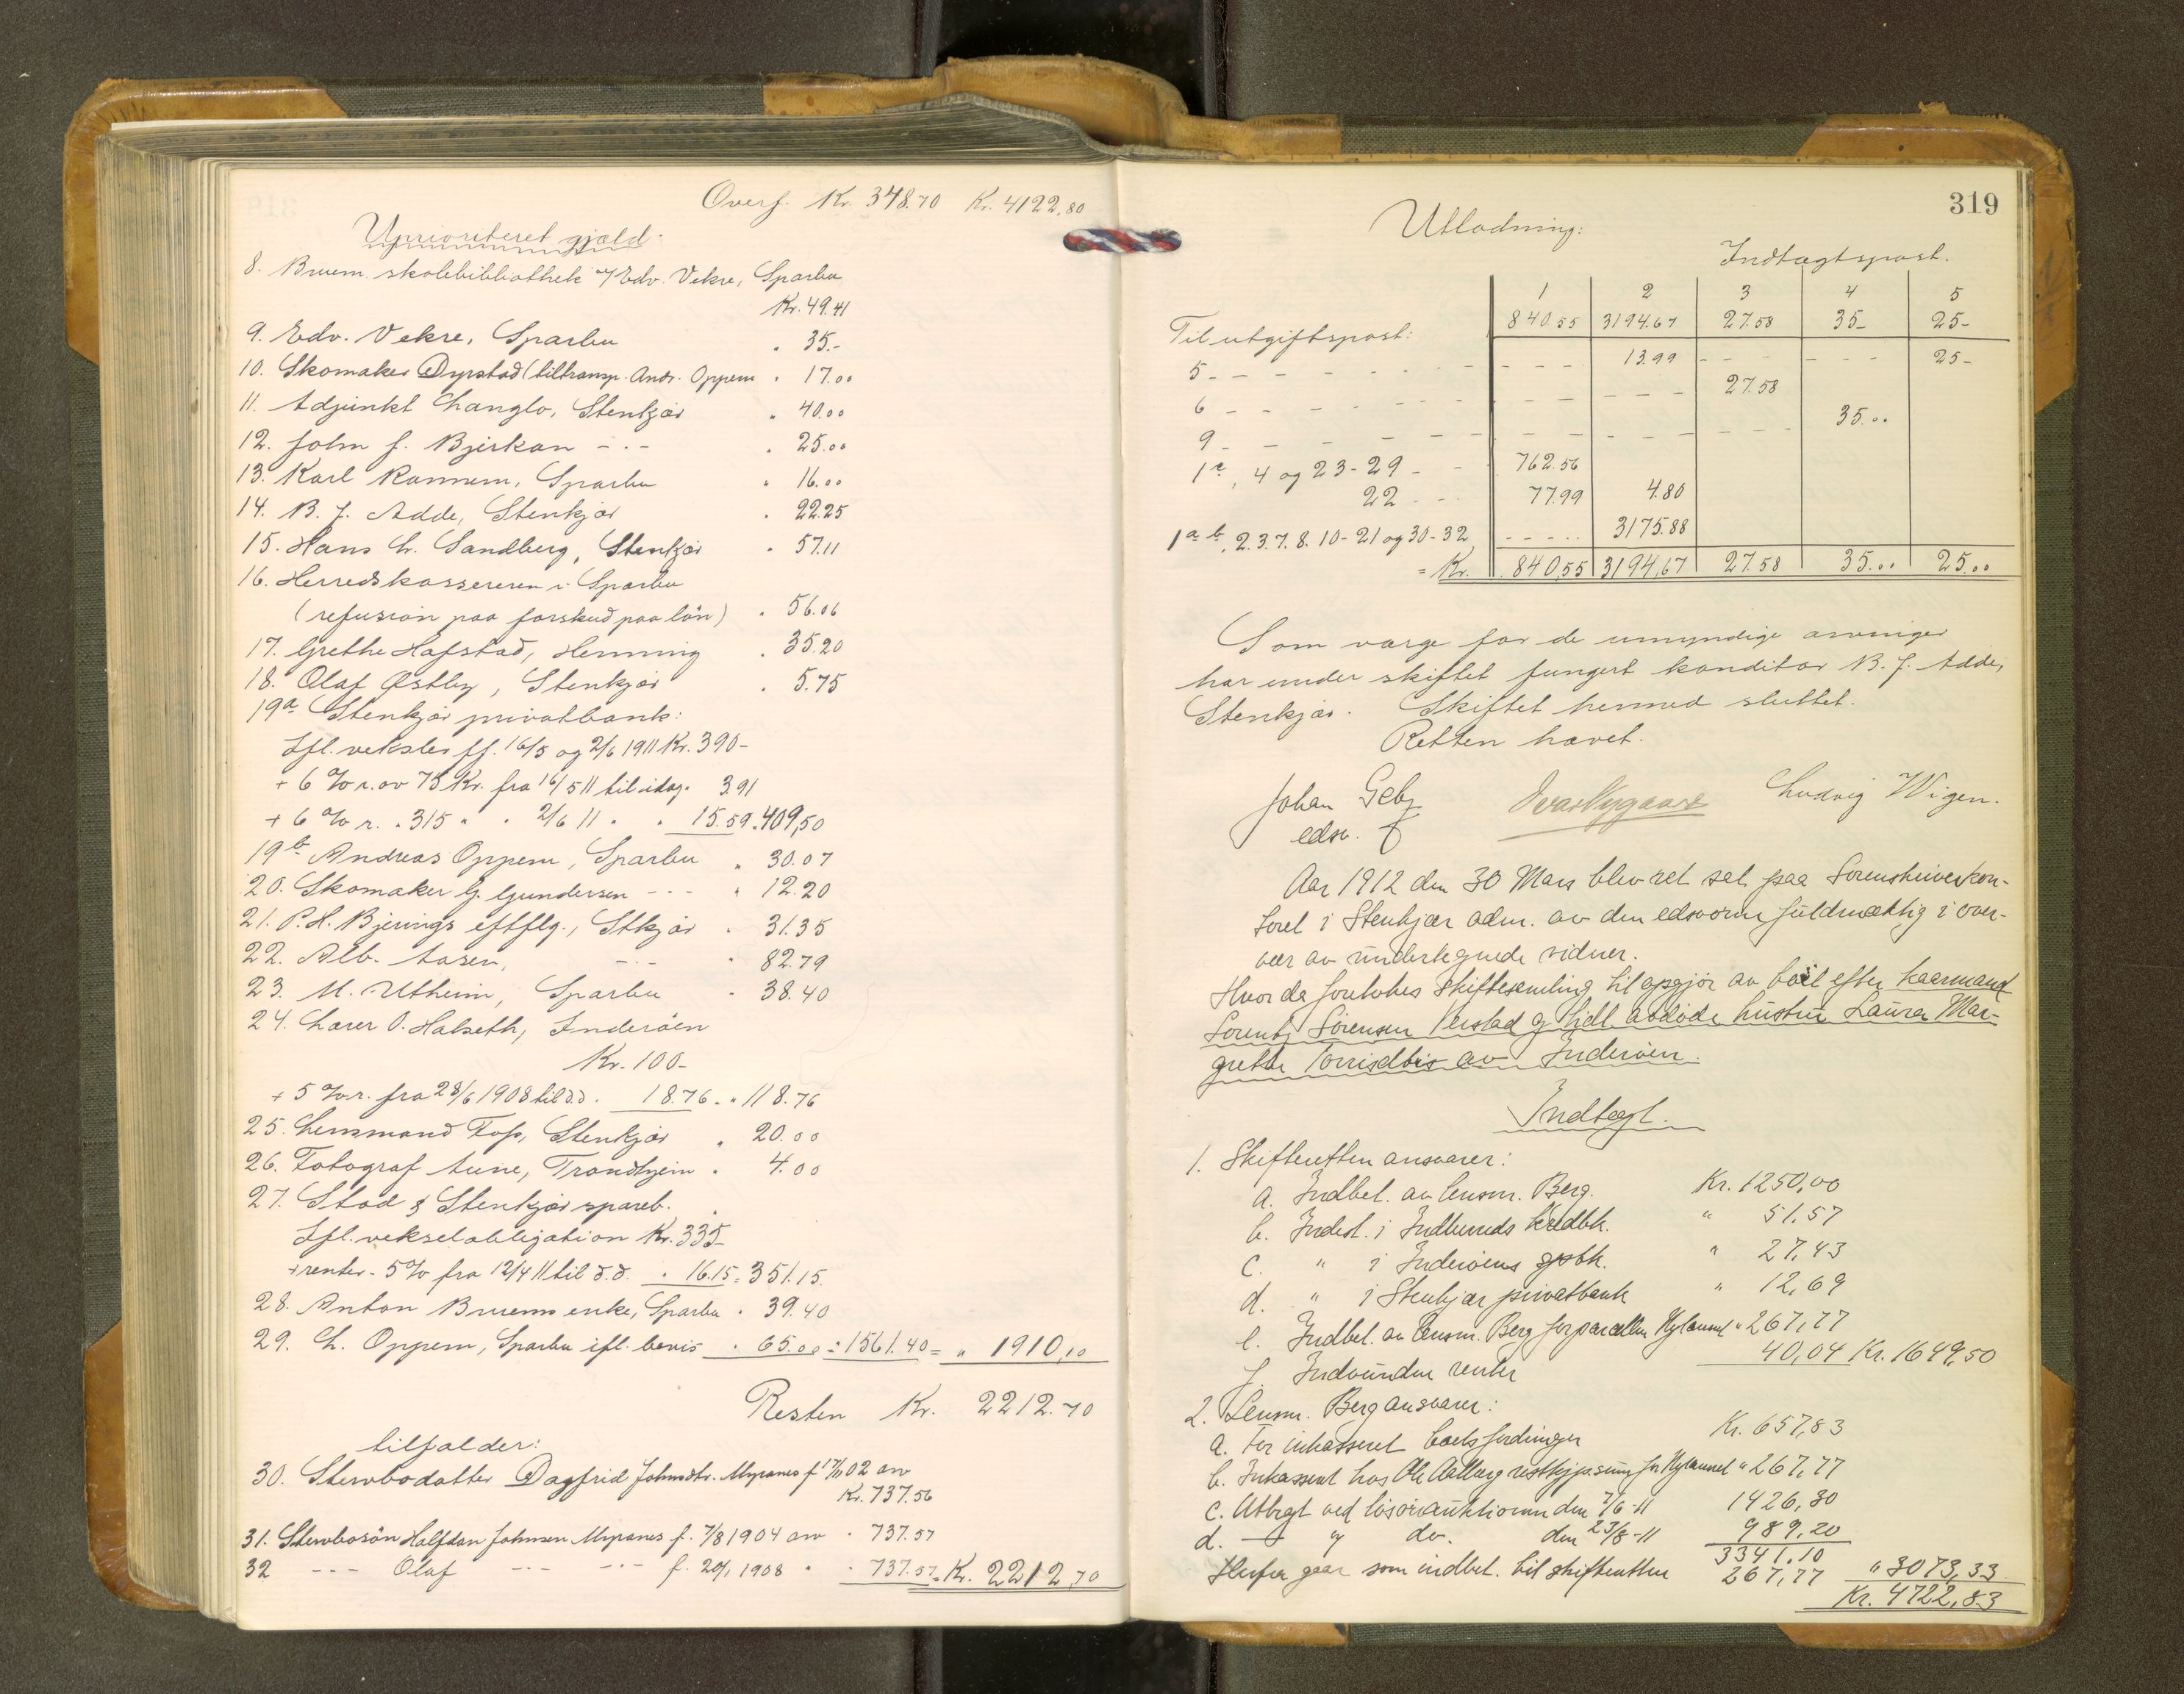 Overf. Kr. 348.70 Kr. 4122.80
Uprioriteret gjæld.
8. Bruem. skolebibliothek v/Edv. Vekre, Sparbu
Kr. 49.41
9. Edv. Vekre, Sparbu " 35.-
10. Skomaker Dyrstad (tiltransp. Andr. Oppem " 17.00
11. Adjunkt Langlo, Stenkjær " 40.00
12. John J. Bjerkan -"- " 25.00
13. Karl Rannem, Sparbu " 16.00
14. B. J. Adde, Stenkjær " 22.25
15. Hans L. Sandberg, Stenkjær " 57.11
16. Herredskassereren i Sparbu
(refusion paa forskud paa løn) " 56.06
17. Grethe Hafstad, Henning " 35.20
18. Olaf Østby, Stenkjær " 5.75
19a Stenkjær privatbank:
Ifl. veksler ff. 16/5 og 2/6 1911 Kr. 390-
+ 6 % r. av 75 Kr. fra 16/5 11 til idag. 3.91
+ 6 % r. " 315 " " 2/6 11 " " 15.59 " 409,50
19b Andreas Oppem, Sparbu " 30.07
20. Skomaker G. Gundersen -"- " 12.20
21. P. H. Bjerings eftflg., Stkjær " 31.35
22. Alb. Aasen, -"- " 82.79
23. M. Utheim, Sparbu " 38.40
24. Lærer O. Halseth, Inderøen
Kr. 100-
+ 5 % r. fra 28/6 1908 til d.d. 18.76 " 118.76
25. Lensmand Foss, Stenkjær " 20.00
26. Fotograf Aune, Trondhjem " 4.00
27. Stod & Stenkjær spareb.
Ifl. vekselobligation Kr. 335-
+ renter - 5 % fra 12/4 11 til d.d. " 16.15 = 351.15
28. Anton Bruems enke, Sparbu " 39.40
29. L. Oppem, Sparbu ifl. bevis " 65.00 = 1561.40 = " 1910,10
Resten Kr. 2212.70
tilfalder:
30. Stervbodatter Dagfrid Johnsdtr. Myranes f 02 arv
Kr. 737.56
31. Stervbosøn Halfdan Johnsen Myranes f. 7/8 1904 arv " 737.57
32 -"- Olaf -"- -"- f. 20/1 1908 " " 737.57 = Kr. 2212,70
319
Utlodning:
Indtægtspost.
1 2 3 4 5
Til utgiftspost: 840.55 3194.67 27.58 35- 25-
5 - - - 13.99 - - - 25-
6 - - - 27.58
9 - - - 35.00
1c, 4 og 23-29 - - 762.56
22 - - 77.99 4.80
1a b, 2. 3. 7. 8. 10-21 og 30-32 - - - 3175.88
= Kr. 840,55 3194,67 27.58 35.00 25.00
Som værge for de umyndige arvinger
har under skiftet fungert konditor B. J. Adde,
Stenkjær. Skiftet hermed sluttet.
Retten hævet.
Johan Gebz Ivar Nygaard Ludvig Wigen.
edsv. f
Aar 1912 den 30 Mars blev ret sat paa Sorenskriverkon-
toret i Stenkjær adm. av den edsvorne fuldmæktig i over-
vær av undertegnede vidner.
Hvor da foretokes skiftesamling til opgjør av boet efter kaarmand
Lorents Sørensen Verstad og tidl. avdøde hustru Laura Mar-
grethe Torrisdtr av Inderøen.
Indtægt.
1. Skifteretten ansvarer:
a. Indbet. av lensm. Berg. Kr. 1250,00
b. Indest. i Indherreds kredbk. " 51,57
c. " i Inderøens spbk. " 27,43
d. " i Stenkjær privatbank " 12,69
e. Indbet. av lensm. Berg for parcellen Nylaunet " 267,77
f. Indvundne renter 40,04 Kr. 1649,50
2. Lensm. Berg ansvarer:
a. For inkasseret boets fordringer Kr. 657,83
b. Inkasseret hos Ole Aalberg restkjøpsum for Nylaunet " 267,77
c. Utbragt ved løsøreauktionen den 7/6 -11 1426,30
d. — " do. den 23/8 -11 989,20
3341.10
Herfra gaar som indbet. til skifteretten 267,77 " 3073,33
Kr. 4722,83